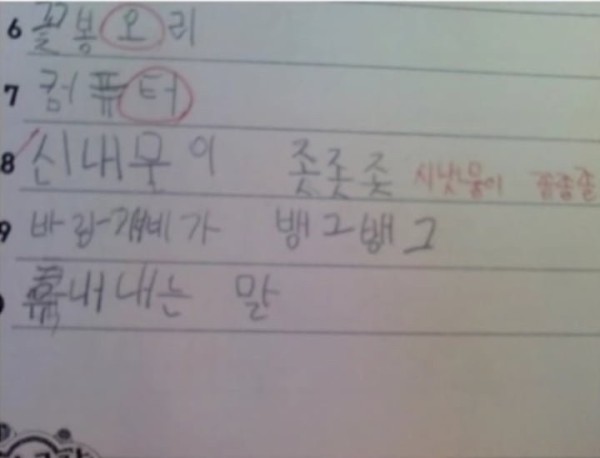 6 꽃봉오리
7 컴퓨터
8 신내뭇이 좃좃좃 시냇물이 졸졸졸
9 바람개비가 뱅그뱅그
흉내내는 말